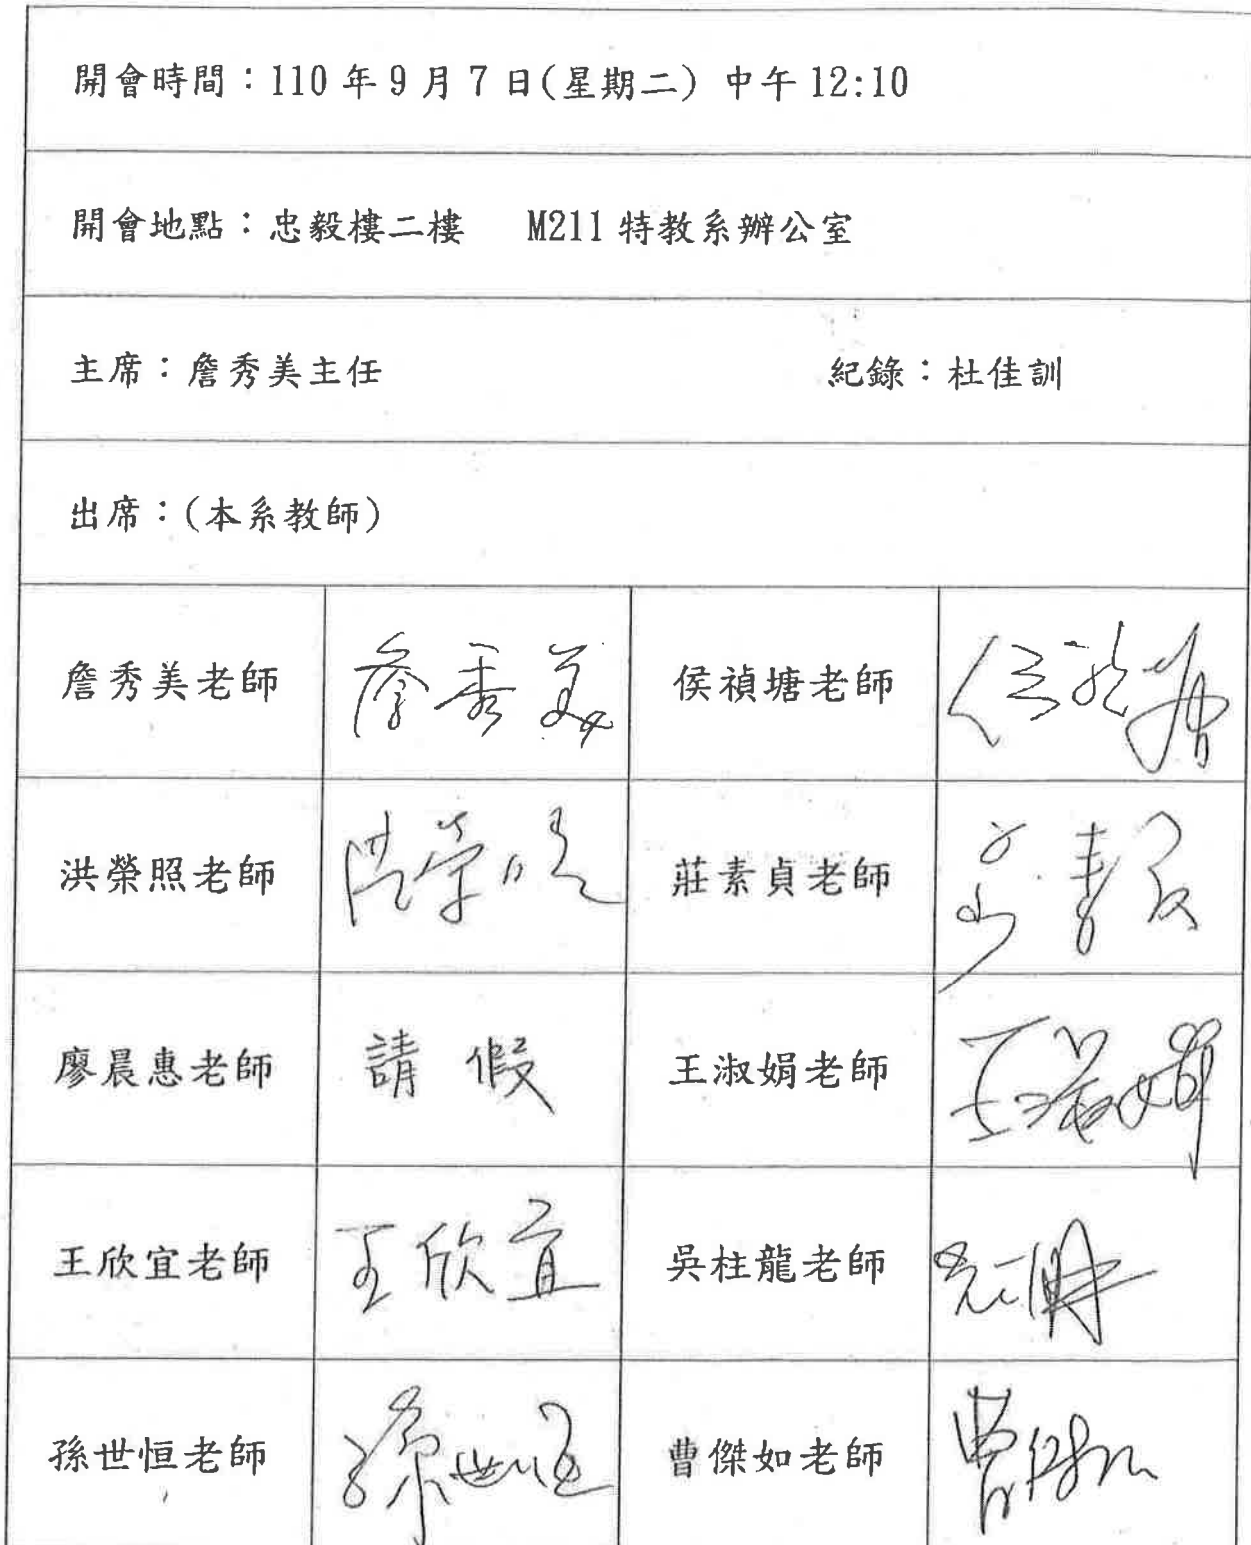 開會時間：110 年 9 月 7 日(星期二) 中午 12:10
開會地點：忠毅樓二樓 M211 特教系辦公室
主席：詹秀美主任 紀錄：杜佳訓
出席：(本系教師)
詹秀美老師 詹秀美 侯禎塘老師 侯禎塘
洪榮照老師 洪榮照 莊素貞老師
廖晨惠老師 請假 王淑娟老師 王淑娟
王欣宜老師 王欣宜 吳柱龍老師
孫世恒老師 孫世恒 曹傑如老師 曹傑如